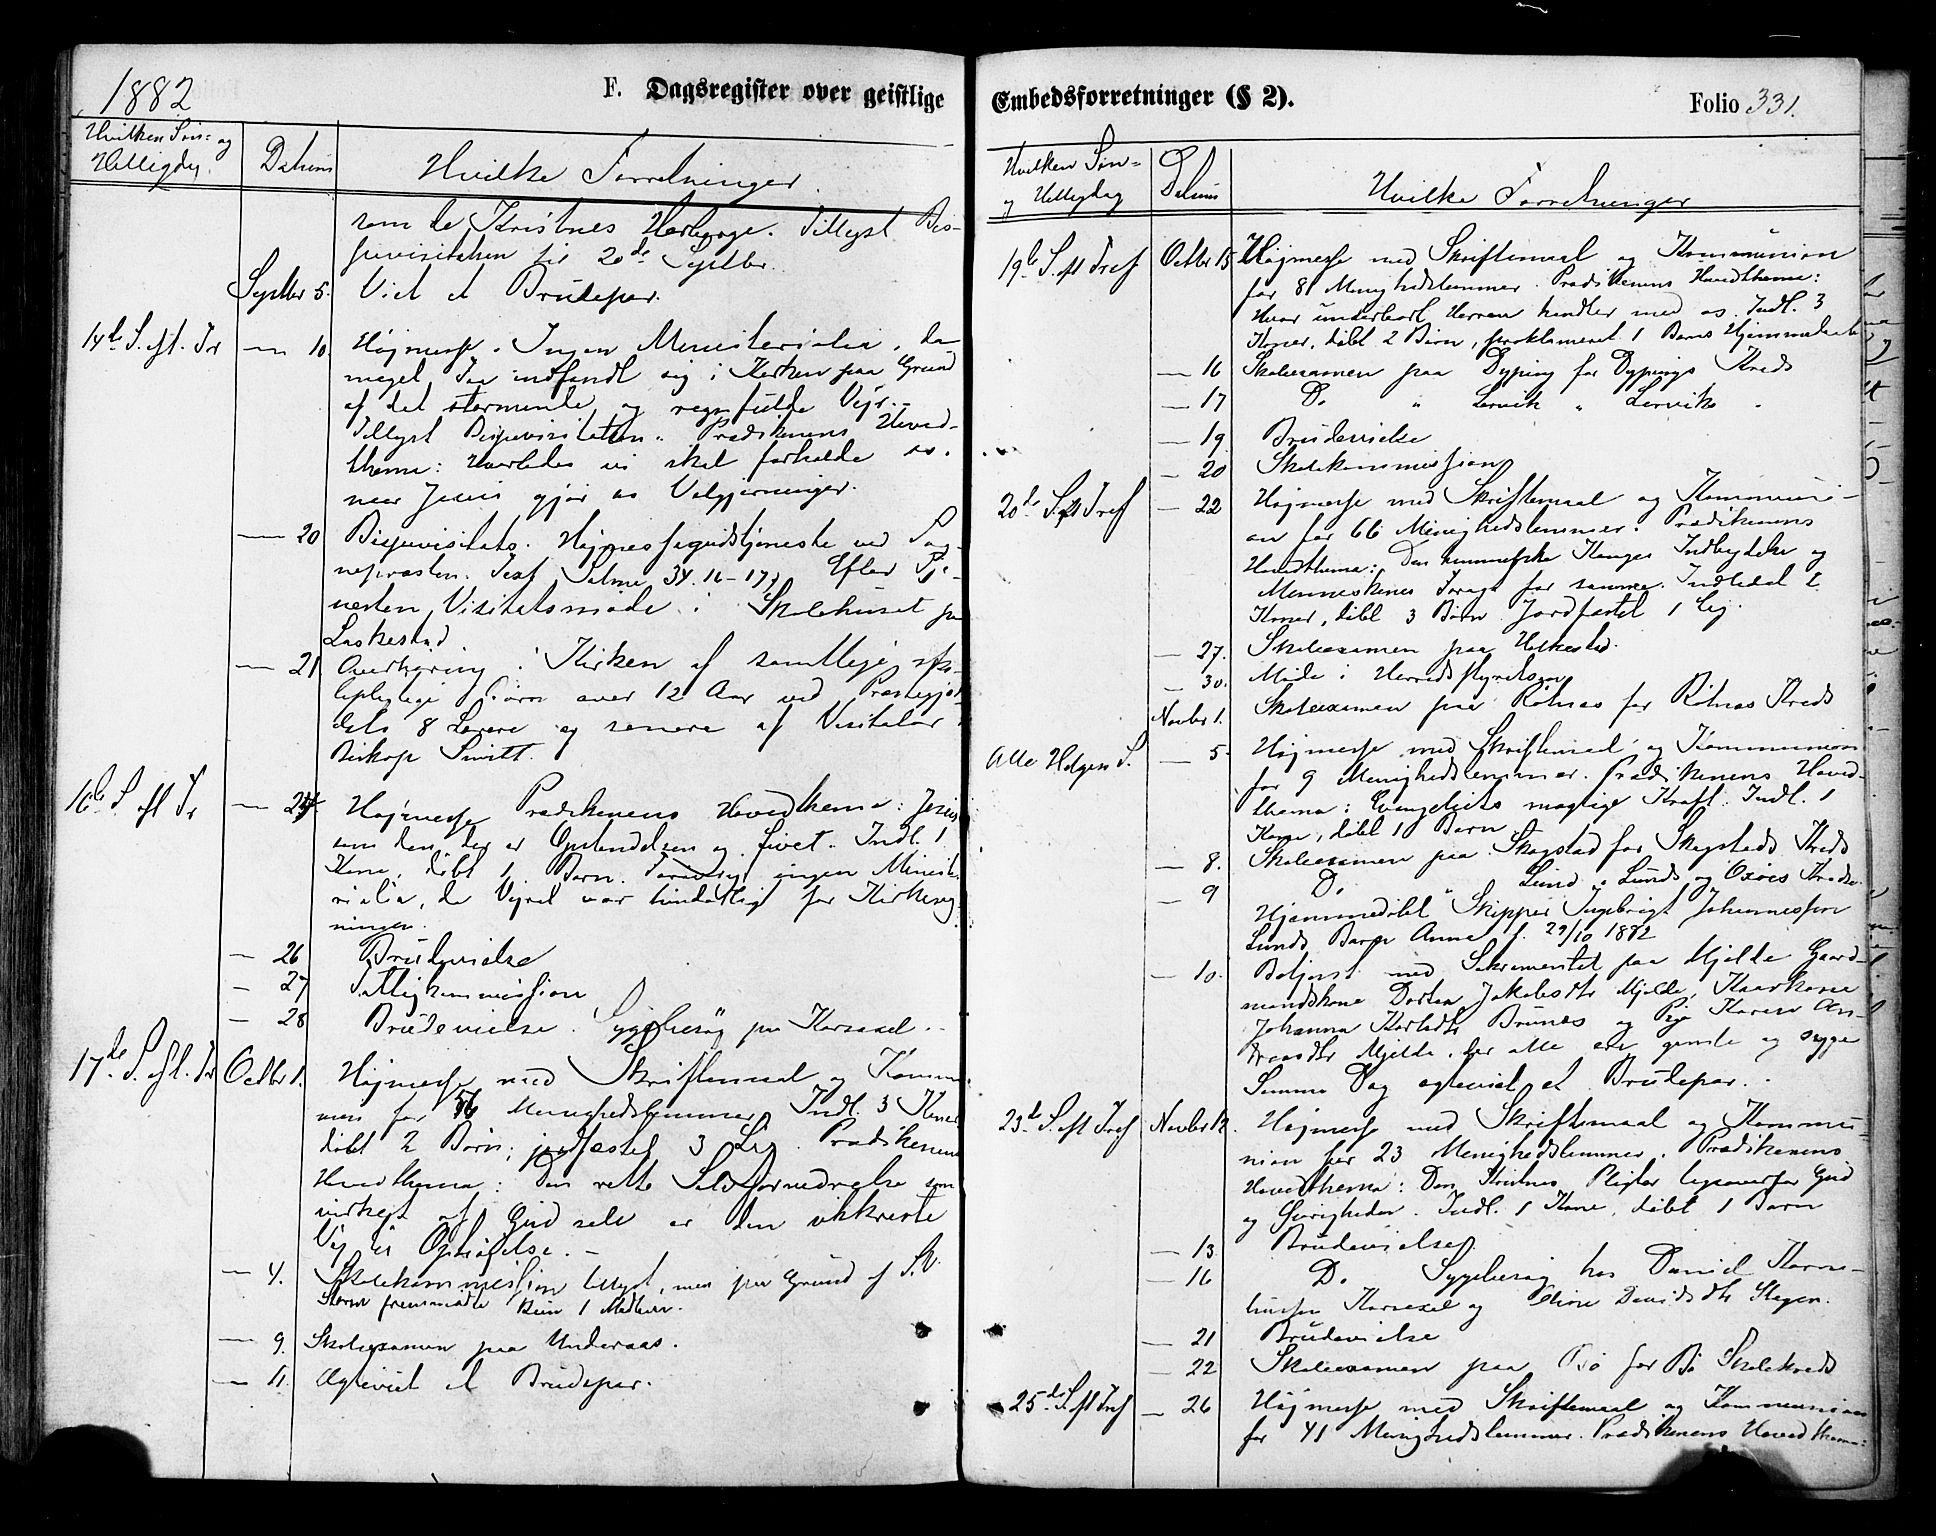 1882
F. Dagsregister over geistlige
Hvilken Søn- og
Helligdag.
Datum
Hvilke Forretninger.
som de Kristnes Herberge. Tillyst Bis-
pevisitatsen til 20de Septbr.
Septbr 5. Viet et Brudepar.
14de S. eft. Tr — 10. Højmesse. Ingen Ministerialia, da
meget faa indfandt sig i Kirken paa Grund
af det stormende og regnfulde Vejr.
Tillyst Bispevisitatsen. Prædikenens Hoved-
thema: Hvorledes vi skal forholde os,
naar Jesus gjør os Velgjerninger.
— 20 Bispevisitats. Højmessegudstjeneste ved Sog-
nepræsten. Text Salme 34. 16-17. Efter Tje-
nesten Visitatsmøde i Skolehuset paa
Laskestad
— 21 Overhøring i Kirken af samtlige sko-
lepligtige Børn over 12 Aar ved Præstegjæl-
dets 8 Lærere og senere af Visitator
Biskop Smitt.
16de S. eft Tr — 24. Højmesse Prædikenens Hovedthema: Jesus
som den, der er Opstandelsen og Livet. Indl. 1
Kone, døbt 1 Barn. ingen Ministe-
rialia, da Vejret var hinderligt for Kirkesøg-
ningen.
— 26 Brudevielse
— 27 kommission
— 28 Brudevielse. Sygebesøg paa Korsnæs.
17de S. eft. Tr Octbr 1. Højmesse med Skriftemaal og Kommu-
nion for 56 Menighedslemmer. Indl. 3 Koner
døbt 2 Børn; jordfæstet 3 Lig. Prædikenens
Hovedthema: Den rette Selvfornedrelse som
virket af Gud selv er den sikkreste
Vej til Ophøjelse.
— 4. Skolekommission tillyst, men paa Grund af S.V.
Storm fremmødte kun 1 Medlem.
— 9. Skoleexamen paa Underaas.
— 11. Ægteviet et Brudepar.
Embedsforretninger (§ 2).
Folio 331.
Hvilken Søn-
og Helligdag
Datum
Hvilke Forretninger
19de S. eft Tref Octbr 15 Højmesse med Skriftemaal og Kommunion
for 8 Menighedslemmer. Prædikenens Hovedthema:
Hvor underbart Herren handler med os. Indl. 3
Koner, døbt 2 Børn, proklameret 1 Barns Hjemmedaab
— 16 Skoleexamen paa Dyping for Dypings Kreds
— 17 Do " Lervik " Lerviks "
— 19 Brudevielse
— 20 Skolekommission
20de S. eft Tref — 22 Højmesse med Skriftemaal og Kommuni-
on for 66 Menighedslemmer. Prædikenens
Hovedthema: Den himmelske Konges Indbydelse og
Menneskenes Foragt for samme. Indledet 2
Koner, døbt 3 Børn. Jordfæstet 1 Lig.
— 27. Skoleexamen paa Holkestad.
— 30. Møde i Herredsstyrelsen
Novbr 1. Skoleexamen paa Røtnæs for Røtnæs Kreds
Alle Helgens S. — 5. Højmesse med Skriftemaal og Kommunion
for 9 Menighedslemmer. Prædikenens Hoved-
thema: Evangeliets mægtige Kraft. Indl. 1
Kone, døbt 1 Barn
— 8. Skoleexamen paa Skogstad for Skogstads Kreds
— 9 Do " Lund " Lunds og Oxøes Kredse.
Hjemmedøbt Skipper Ingebrigt Johannessen
Lunds Barn Anna f. 29/10 1882
— 10. Betjent med Sakramentet paa Mjelde Gaard-
mandskone Dorthea Jakobsdtr Mjelde, Kaarkone
Johanna Karlsdtr Brunes og Pige Karen An-
dreasdtr Mjelde, der alle ere gamle og syge
Samme Dag ægteviet et Brudepar.
23de S. eft Tref Novbr 12. Højmesse med Skriftemaal og Kommu-
nion for 23 Menighedslemmer. Prædikenens
Hovedthema: Den Kristnes Pligter ligeoverfor Gud
og Øvrigheden. Indl. 1 Kone, døbt 1 Barn
— 13 Brudevielse
— 16 Do Sygebesøg hos Daniel Korne-
liussen Korsnæs og Davidsdtr Skagen.
— 21 Brudevielse
— 22 Skoleexamen paa Bø for Bø Skolekreds
25de S. eft Tref — 26 Højmesse med Skriftemaal og Kommunion
for 41 Menighedslemmer. Prædikenens Hovedthema: